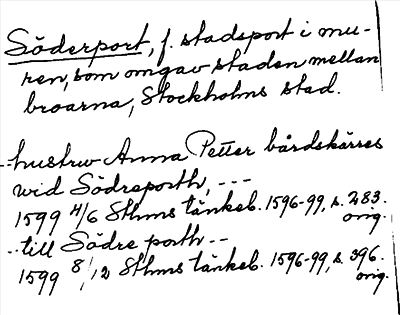 Söderport, f. stadsport i mu-
ren, som omgav staden mellan
broarna, Stockholms stad.
--hustrw Anna Petter bårdskärres
wid Södreporth, ---
1599 4/6 Sthms tänkeb. 1596-99, s. 283.
orig.
--till Södre porth--
1599 8/12 Sthms tänkeb. 1596-99, s. 396.
orig.